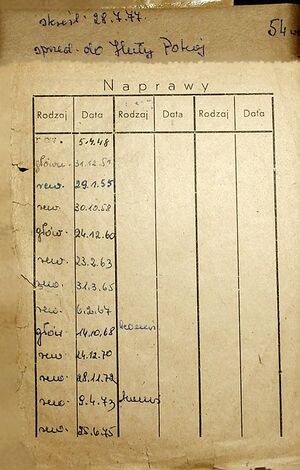 skreśl. 28.7.77.
54
sprzed. do Huty Pokój
Naprawy
Rodzaj Data Rodzaj Data Rodzaj Data
5.4.48
główn. 31.12.51
rew. 29.1.55
rew. 30.10.58
głów. 24.12.60
rew. 23.2.63
rew. 31.3.65
rew. 6.2.67
głów. 14.10.68
rew. 24.12.70
rew. 28.11.72
rew. 9.4.73
rew. 25.6.75